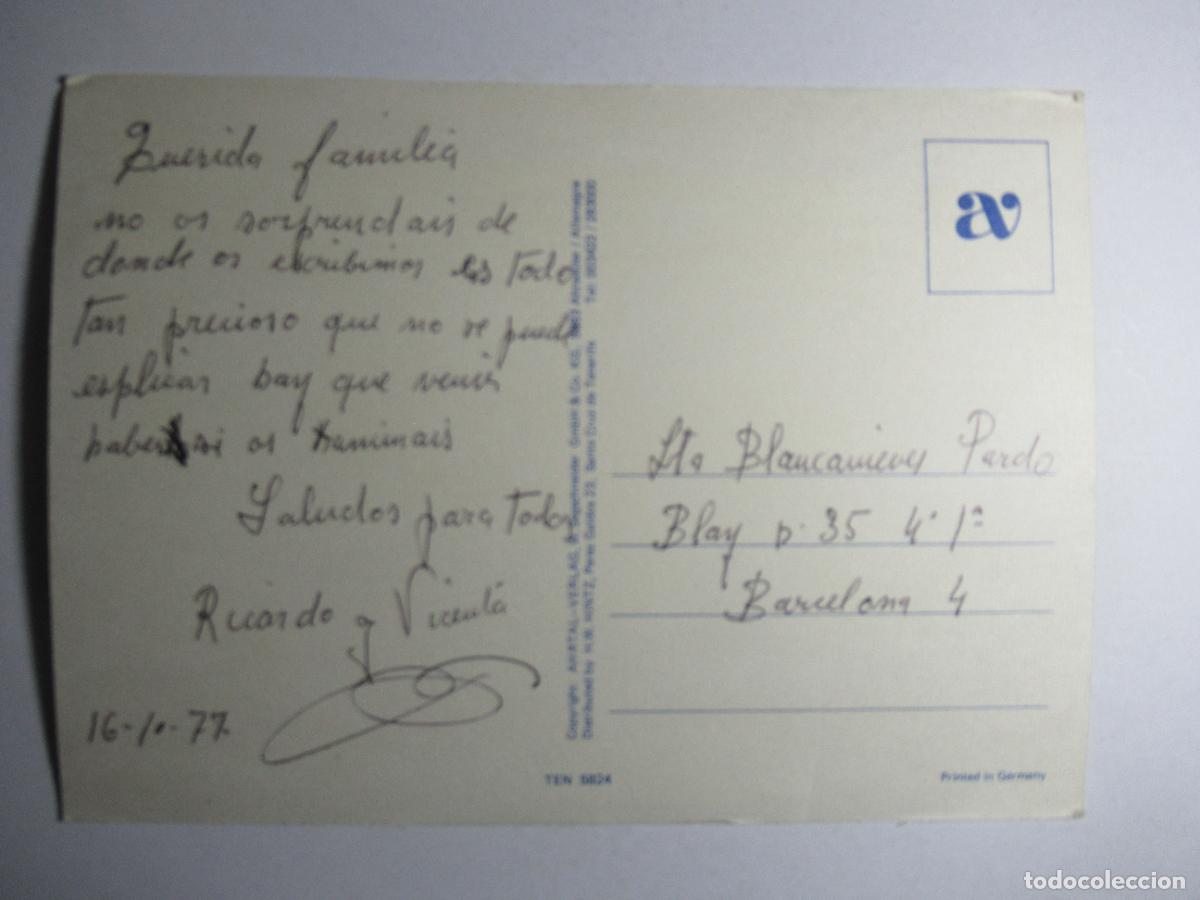 Querida familia
no os sorprendais de
donde os escribimos es todo
tan precioso que no se puede
esplicar bay que venir
haber si os hanimais
Saludos para todos
Ricardo y Vicenta
16-10-77
Copyright: AHATAL-VERLAG, GmbH & Co. KG, / Allemagne
Distributed by H.W. HINTZ, Perez Galdos 23, Santa Cruz de Tenerife Tel:
TEN 5824
av
Sta Blancanieves Pardo
Blay n. 35 4º 1ª
Barcelona 4
Printed in Germany
todocoleccion